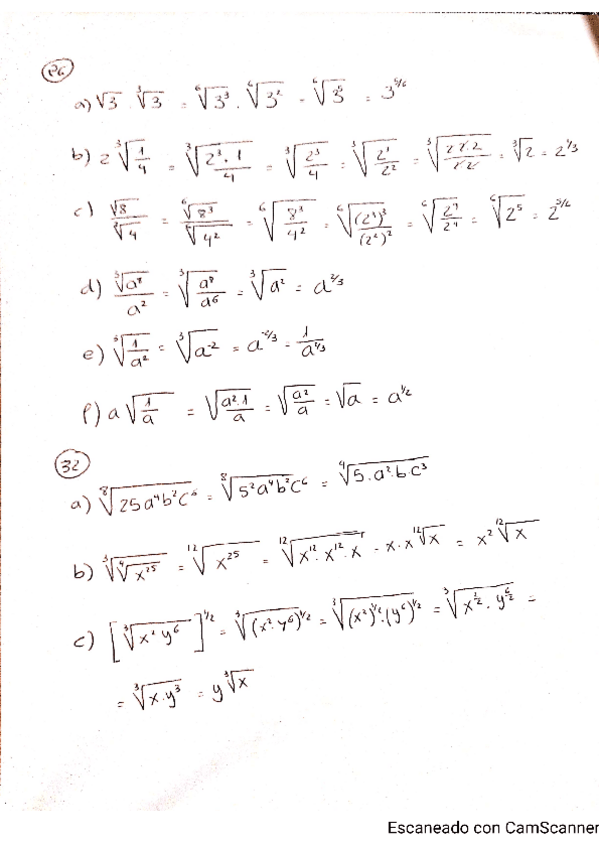 26
a) √3 · ∛3 = ⁶√3³ · ⁶√3² = ⁶√3⁵ = 3^5/6
b) 2 ∛(1/4) = ∛(2³·1/4) = ∛(2³/4) = ∛(2³/2²) = ∛(2·2·2/2·2) = ∛2 = 2^1/3
c) √8/∛4 = ⁶√8³/⁶√4² = ⁶√(8³/4²) = ⁶√((2³)³/(2²)²) = ⁶√(2⁹/2⁴) = ⁶√2⁵ = 2^5/6
d) ∛a⁸/a² = ∛(a⁸/a⁶) = ∛a² = a^2/3
e) ∛(1/a²) = ∛a⁻² = a^-2/3 = 1/a^2/3
f) a √(1/a) = √(a²·1/a) = √(a²/a) = √a = a^1/2
32
a) ⁸√25a⁴b²c⁶ = ⁸√5²a⁴b²c⁶ = ⁴√5·a²·b·c³
b) ∛⁴√x²⁵ = ¹²√x²⁵ = ¹²√x¹²·x¹²·x = x·x ¹²√x = x² ¹²√x
c) [∛x²y⁶]^1/2 = ∛(x²·y⁶)^1/2 = ∛(x²)^1/2·(y⁶)^1/2 = ∛x^2/2·y^6/2 =
= ∛x·y³ = y ∛x
Escaneado con CamScanner